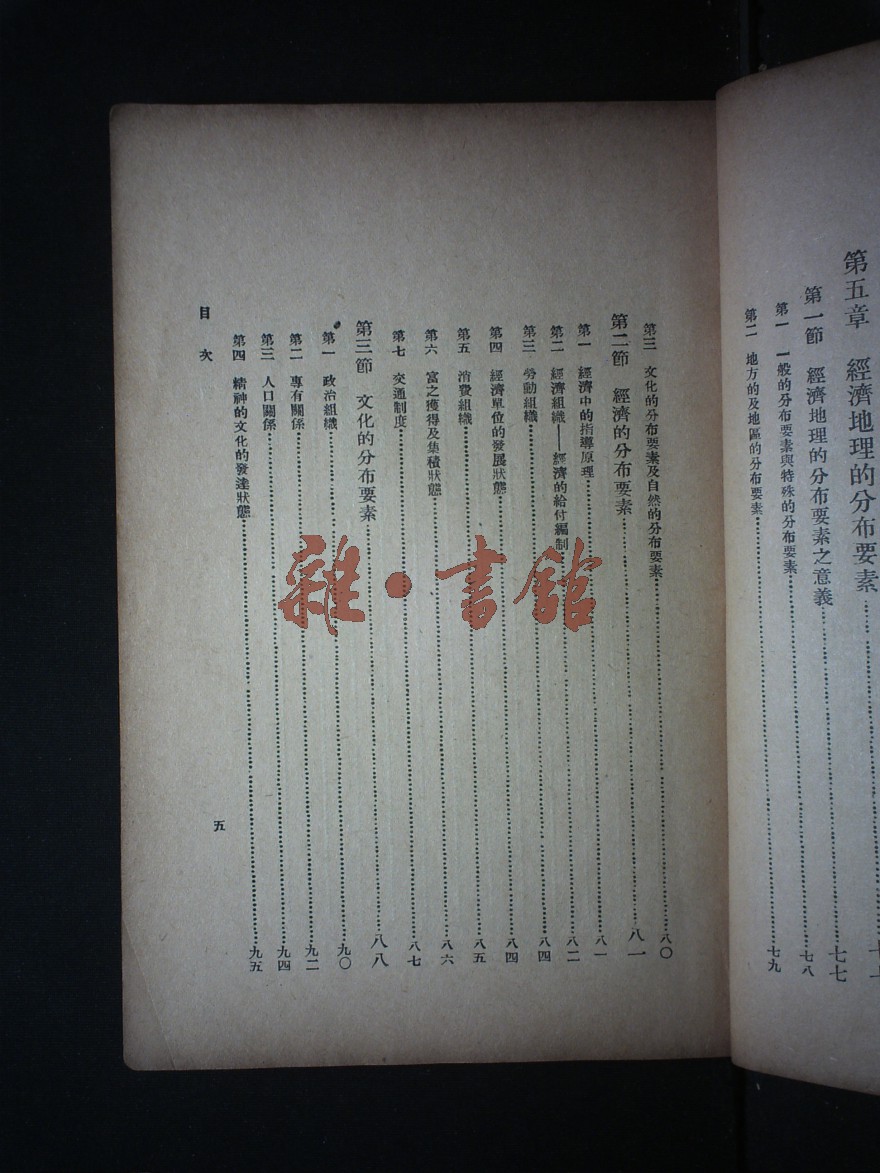 第五章　經濟地理的分布要素……
第一節　經濟地理的分布要素之意義……七七
第一　一般的分布要素與特殊的分布要素……七八
第二　地方的及地區的分布要素……七九
第三　文化的分布要素及自然的分布要素……八〇
第二節　經濟的分布要素……八一
第一　經濟中的指導原理……八一
第二　經濟組織——經濟的給付編制……八二
第三　勞動組織……八四
第四　經濟單位的發展狀態……八四
第五　消費組織……八五
第六　富之獲得及集積狀態……八六
第七　交通制度……八七
第三節　文化的分布要素……八八
第一　政治組織……九〇
第二　專有關係……九二
第三　人口關係……九四
第四　精神的文化的發達狀態……九五
目次
五
雜·書館